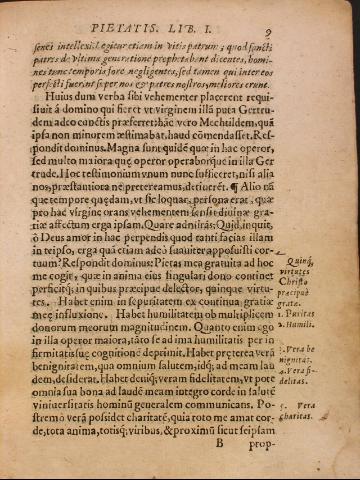 PIETATIS. LIB. I. 9
senei intellexi. Legitur etiam in vitis patrum; quod sancti
patres de vltima generatione prophetabant dicentes, homi-
nes tunc temporis fore negligentes, sed tamen qui inter eos
perfecti fuerint super nos & patres nostros meliores erunt.
Huius dum verba sibi vehementer placerent requi-
siuit á domino qui fieret vt virginem illā puta Gertru-
dem adeo cunctis præferret: hāc vero Mechtildem, quā
ipsa non minorem æstimabat, haud cōmendasset. Res-
pondit dominus. Magna sunt quidē quæ in hac operor,
sed multo maiora quę operor operaborque in illa Ger
trude. Hoc testimonium vnum nunc sufficeret, nisi alia
nos, præstantiora ne preterеamus, detineret. ¶ Alio nā
que tempore quędam, vt sic loquar, persona erat, quæ
pro hac virgine orans vehementem sensit diuinæ gra-
tiæ affectum erga ipsam. Quare admirās; Quid, inquit,
ò Deus amor in hac perpendis quod tanti facias illam
in teipso, erga quā etiam adeò suauiter apposuisti cor
tuum? Respondit dominus: Pietas mea gratuita ad hoc
me cogit, quæ in anima eius singulari dono continet
perficitq; in quibus præcipue delector, quinque virtu-
tes. Habet enim in se puritatem ex continua gratiæ
meę influxione. Habet humilitatem ob multiplicem
donorum meorum magnitudinem. Quanto enim ego
in illa operor maiora, tāto se ad ima humilitatis per in
firmitatis suę cognitionē deprimit. Habet pręterea verā
benignitatem, qua omnium salutem, idq; ad meam lau
dem, desiderat. Habet deniq; veram fidelitatem, vt pote
omnia sua bona ad laudē meam integro corde in salutē
vniuersitatis hominū generalem communicans. Po-
stremò verā possidet charitatē, quia toto me amat cor-
de, tota anima, totisq; viribus, & proximū sicut seipsam
B prop-
Quinq;
virtutes
Christo
præcipuè
gratæ.
1. Puritas
2. Humili.
3. Vera be
nignitas.
4. Vera fi-
delitas.
5. Vera
charitas.